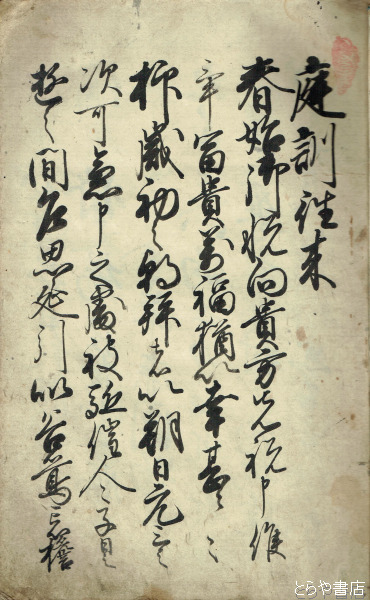 庭訓往来
春始御悦向貴方先祝申候
畢冨貴万福猶以幸甚々々
抑歳初之朝拝者以朔日元三之
次可急申之處被駈催人々子日
遊之間乍思延引似谷鶯忘檐
とらや書店